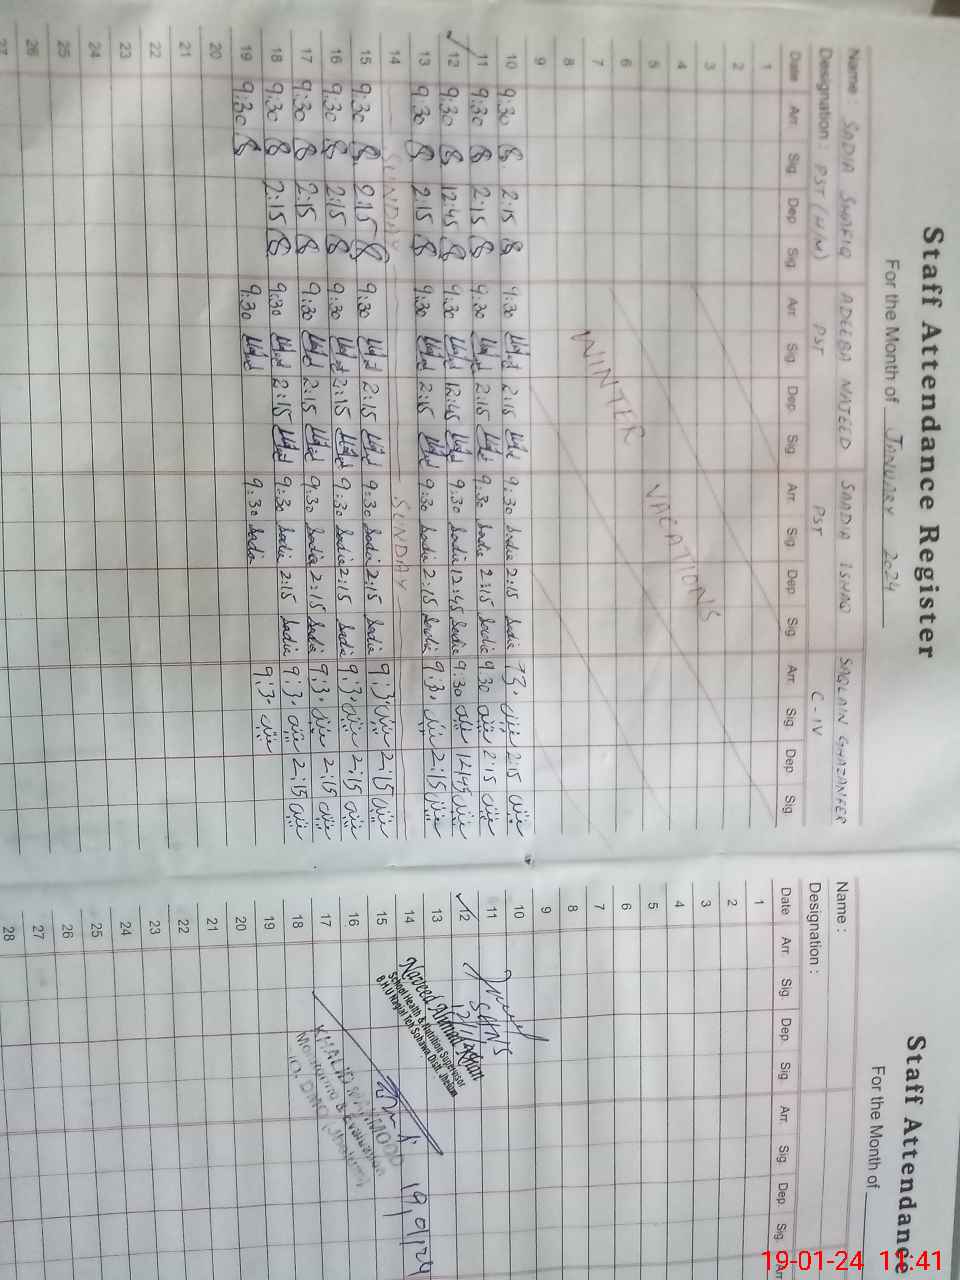 Staff Attendance Register
For the Month of January 2024
Name: SADIA SHAFIQ ADEEBA NAJEED SAADIA ISHAQ SAQLAIN GHAZANFER
Designation: PST (H/M) PST PST C-IV
Date Arr. Sig. Dep. Sig. Arr. Sig. Dep. Sig. Arr. Sig. Dep. Sig. Arr. Sig. Dep. Sig.
1
2
3
4
5
6
7
8
9
WINTER VACATIONS
10 9:30 2:15 9:30 2:15 9:30 Sadia 2:15 Sadia 2:15
11 9:30 2:15 9:30 2:15 9:30 Sadia 2:15 Sadia 9:30 2:15
12 9:30 12:45 9:30 12:45 9:30 Sadia 12:45 Sadia 9:30 12:45
13 9:30 2:15 9:30 2:15 9:30 Sadia 2:15 Sadia 9:3. 2:15
14 SUNDAY SUNDAY
15 9:30 2:15 9:30 2:15 9:30 Sadia 2:15 Sadia 9:3. 2:15
16 9:30 2:15 9:30 2:15 9:30 Sadia 2:15 Sadia 9:3. 2:15
17 9:30 2:15 9:30 2:15 9:30 Sadia 2:15 Sadia 9:3. 2:15
18 9:30 2:15 9:30 2:15 9:30 Sadia 2:15 Sadia 9:3. 2:15
19 9:30 9:30 9:30 Sadia 9:3.
20
21
22
23
24
25
26
27
Staff Attendance
For the Month of
Name:
Designation:
Date Arr. Sig. Dep. Sig. Arr. Sig. Dep. Sig. Arr
1
2
3
4
5
6
7
8
9
10
11
12
13
14
15
16
17
18
19
20
21
22
23
24
25
26
27
28
SHNS
12/1/24
Naveed Ahmad Khan
School Health & Nutrition Supervisor
B.H.U Nagial Teh Sohawa Distt. Jhelum
19/01/24
KHALID MAHMOOD
Monitoring & Evaluation
19-01-24 11:41